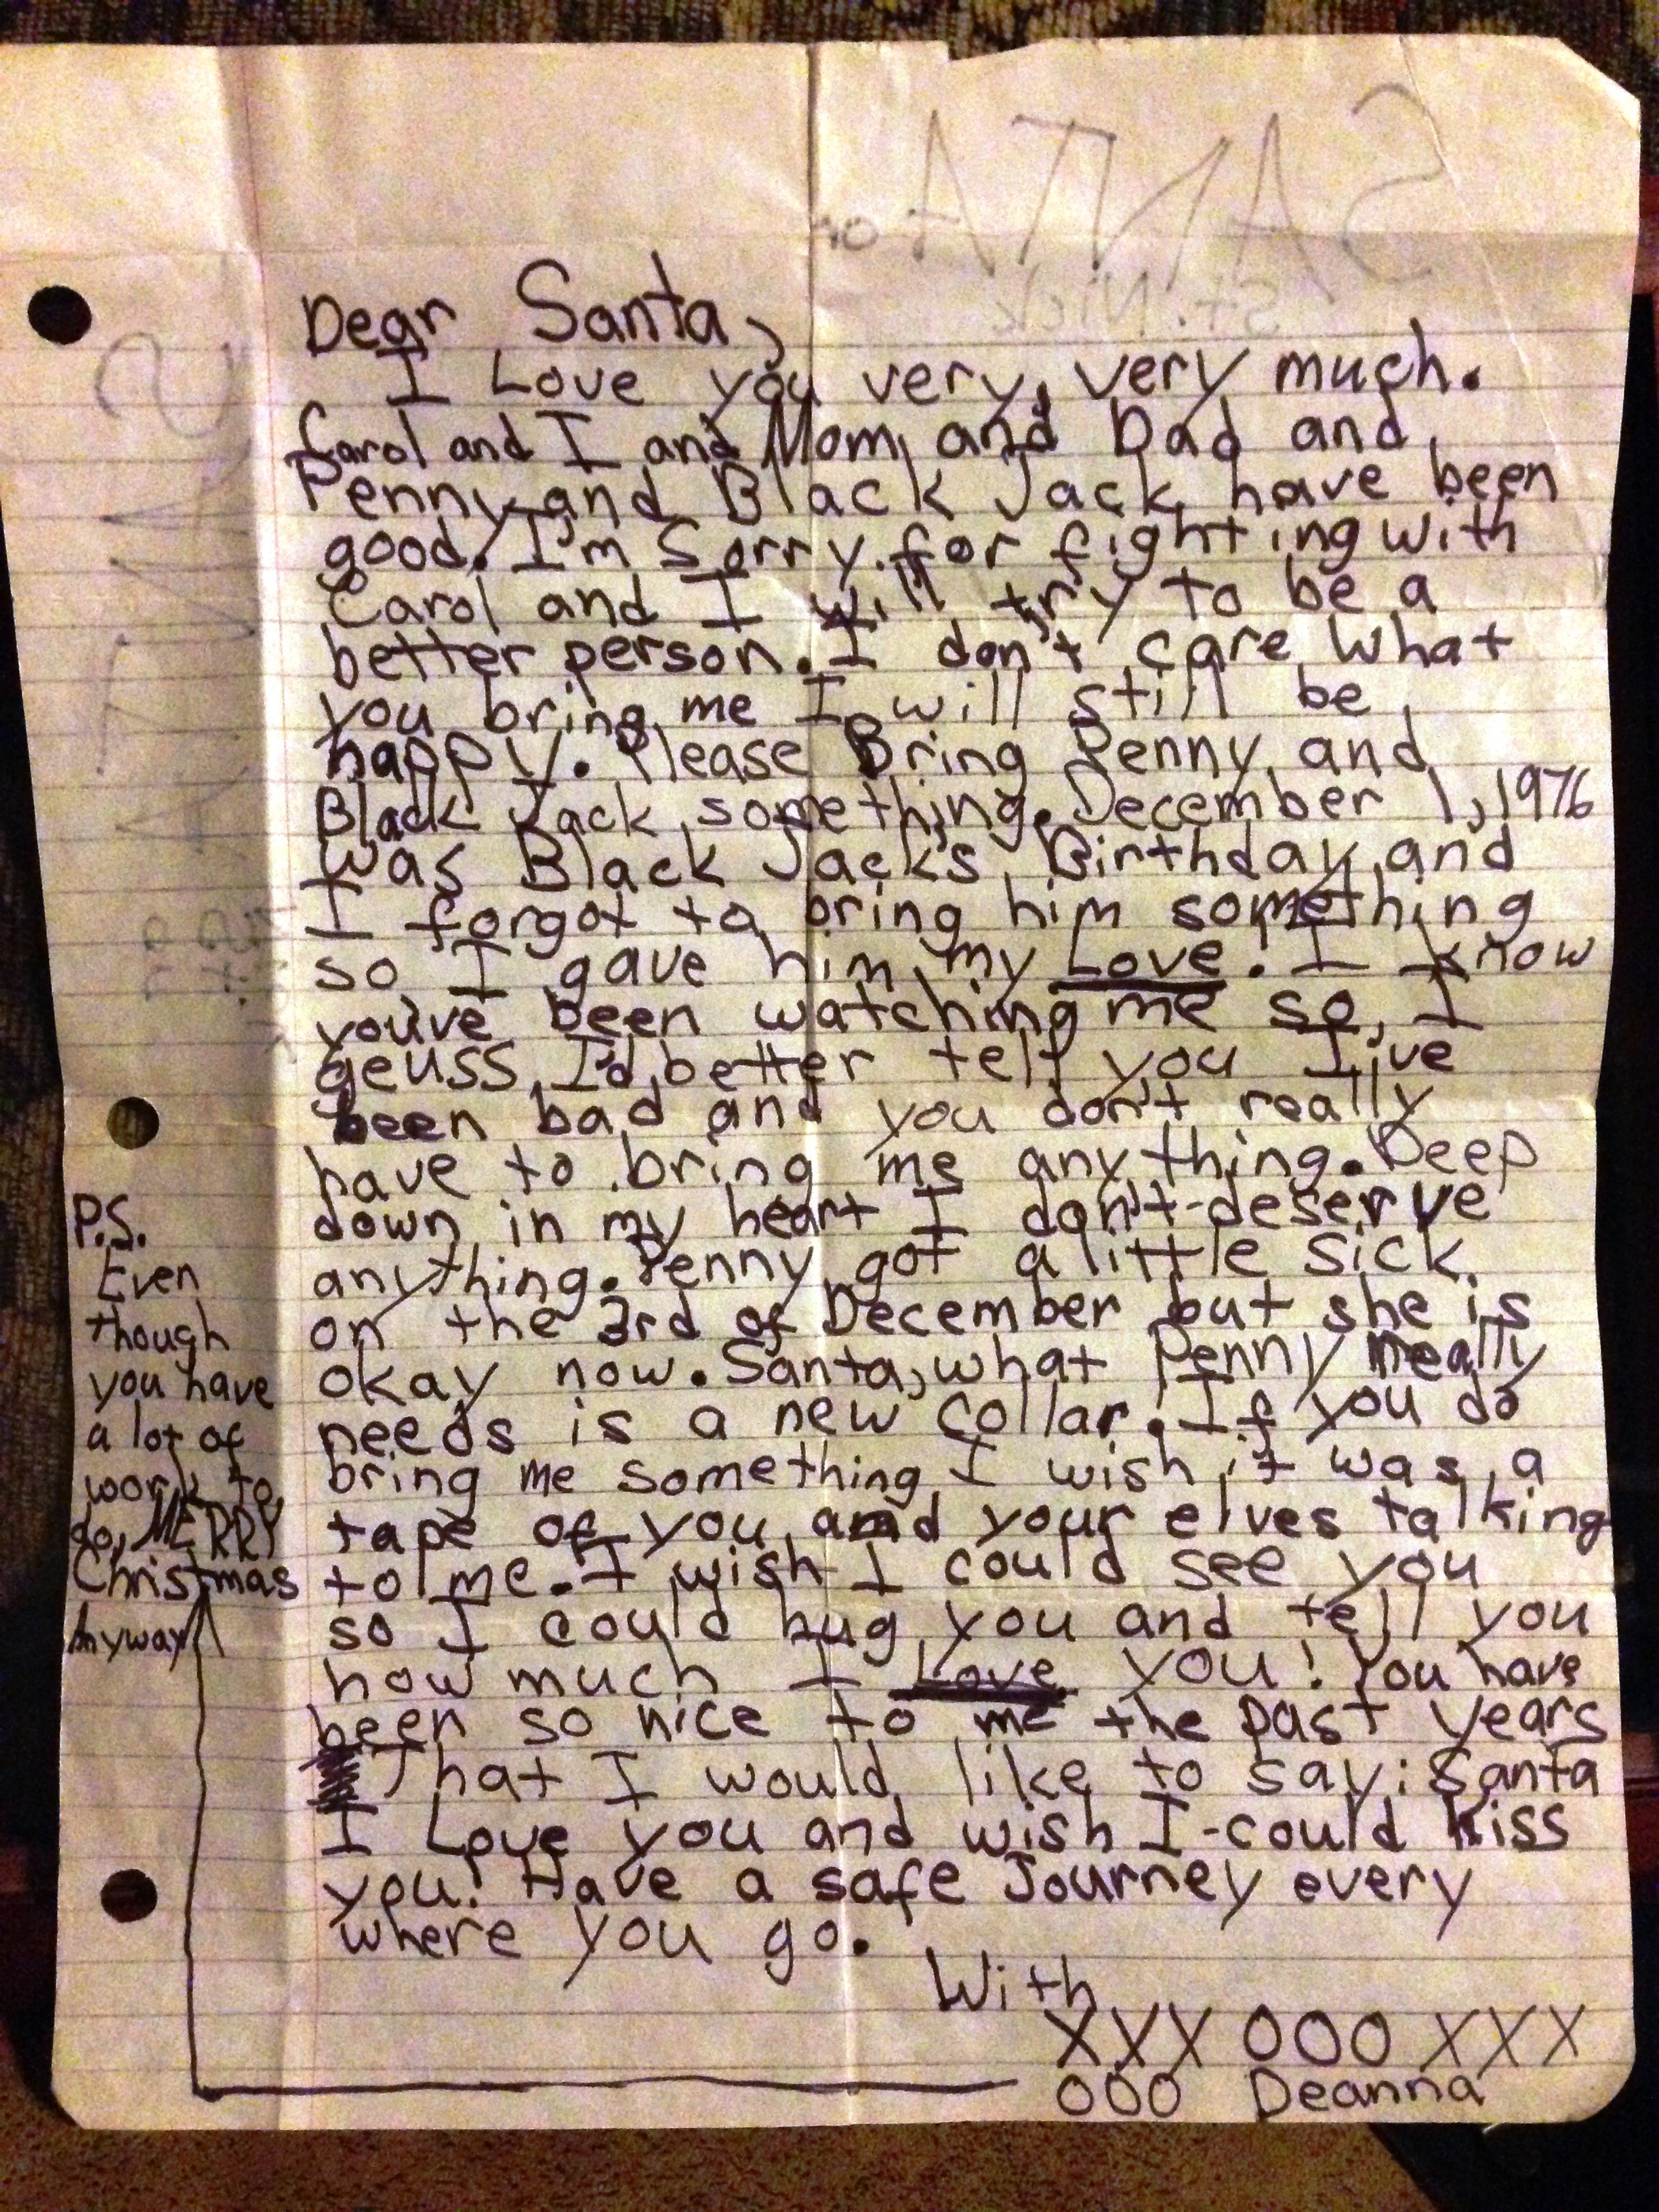 SANTA or
St. Nick
Dear Santa,
I Love you very, very much.
Carol and I and Mom and Dad and
Penny and Black Jack have been
good. I'm Sorry for fighting with
Carol and I will try to be a
better person. I don't care what
you bring me I will still be
happy. Please Bring Penny and
Black Jack something. December 1, 1976
was Black Jack's Birthday and
I forgot to bring him something
so I gave him my Love! I know
you've been watching me so, I
geuss I'd better tell you I've
been bad and you don't really
have to bring me anything. Deep
down in my heart I don't deserve
anything. Penny got a little sick
on the 3rd of December but she is
okay now. Santa, what Penny really
needs is a new collar! If you do
bring me something I wish it was a
tape of you and your elves talking
to me. I wish I could see you
so I could hug you and tell you
how much I Love you! You have
been so nice to me the past years
That I would like to say: Santa
I Love you and wish I could kiss
you! Have a safe Journey every
where you go.
With
XXX OOO XXX
OOO Deanna
P.S.
Even
though
you have
a lot of
work to
do, MERRY
Christmas
Anyway